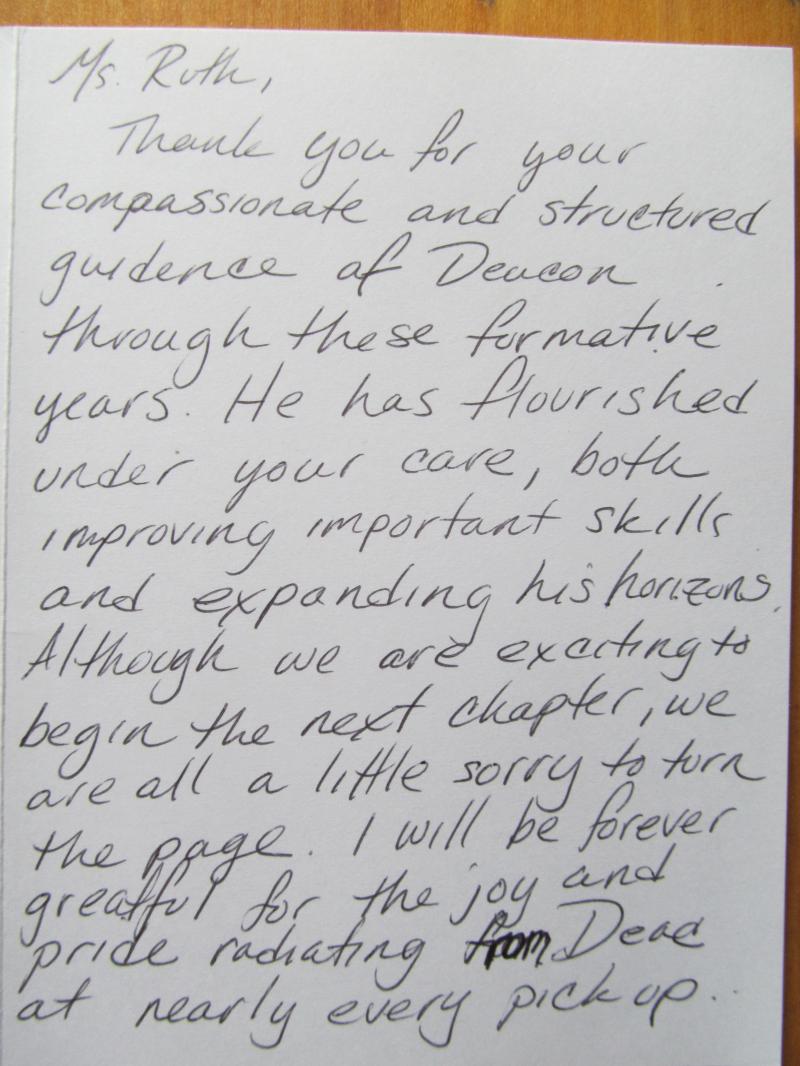 Ms. Ruth,
Thank you for your
compassionate and structured
guidence of Deacon
through these formative
years. He has flourished
under your care, both
improving important skills
and expanding his horizons.
Although we are exciting to
begin the next chapter, we
are all a little sorry to turn
the page. I will be forever
greatful for the joy and
pride radiating from Deac
at nearly every pick up..